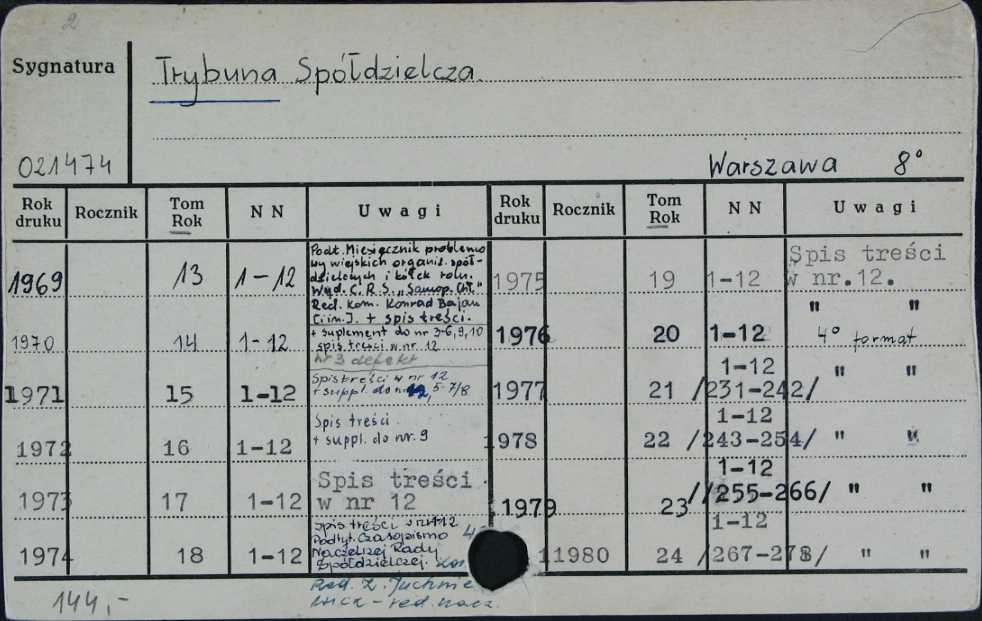 2
Sygnatura
Trybuna Spółdzielcza.
021474
Warszawa 8°
Rok druku Rocznik Tom Rok N N Uwagi Rok druku Rocznik Tom Rok N N Uwagi
1969 13 1-12
Podt. Miesięcznik problemo
wy wiejskich organiz. spół-
dzielczych i kółek roln.
Wyd. C.R.S. „Samop. Chł."
Red. kom. Konrad Bajan
[i in.]. + spis treści.
1970 14 1-12
+ suplement do nr 3-6,9,10
spis treści w nr. 12
nr 3 defekt
1971 15 1-12
Spis treści w nr 12
+ suppl. do nr 5-7/8
1972 16 1-12
Spis treści
+ suppl. do nr. 9
1973 17 1-12
Spis treści
w nr 12
1974 18 1-12
Spis treści w nr 12
Podtyt. Czasopismo
Naczelnej Rady
Spółdzielczej.
Red. Z. Juchnie
wicz - red. nacz.
1975 19 1-12
Spis treści
w nr.12.
" "
1976 20 1-12 4° format
1-12 " "
1977 21 /231-242/
1-12
1978 22 /243-254/ " "
1-12
1979 23 //255-266/ " "
1-12
11980 24 /267-278/ " "
144,-